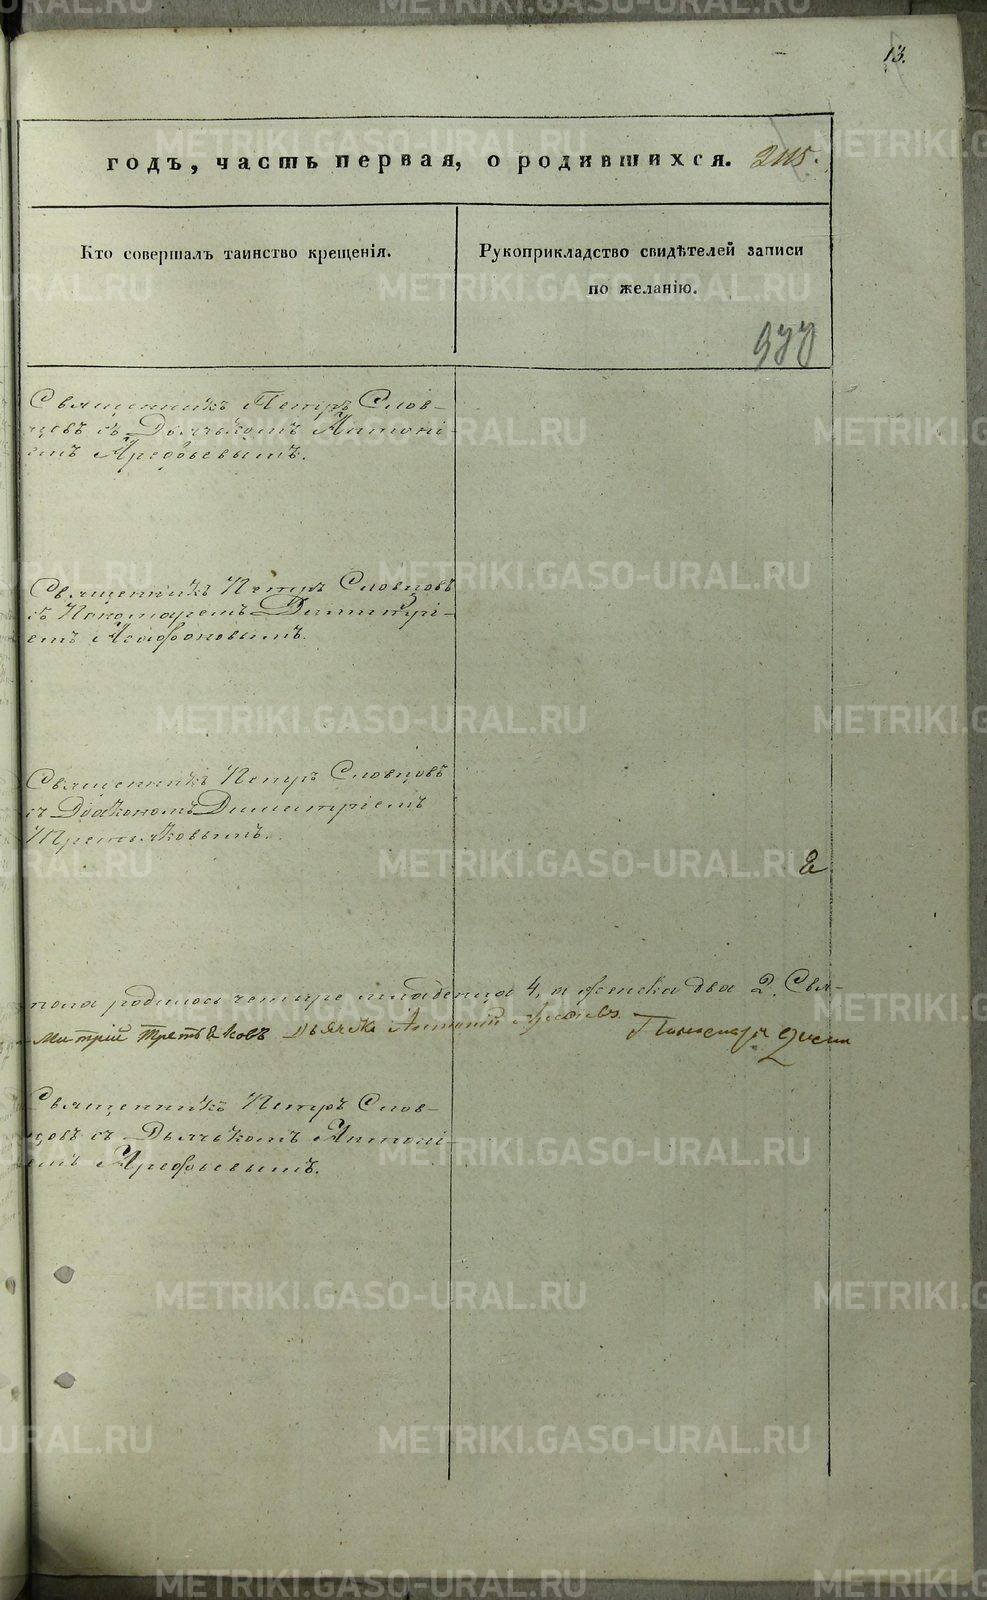 13.
годъ, часть первая, о родившихся. 205.
Кто совершалъ таинство крещенія.
Рукоприкладство свидѣтелей записи
по желанію.
Священникъ Петръ Слов-
цовъ съ Дьячькомъ Антоні-
емъ Арефьевымъ.
Священникъ Петръ Словцовъ
съ Пономаремъ Димитрі-
емъ Агафоновымъ.
Священникъ Петръ Словцовъ
съ Діакономъ Димитріемъ
Третьяковымъ.
2
пола родилось четыре младенца 4, а женска два 2. Свя-
митрій Третьяковъ Дьячекъ Антоній Арефьевъ Пономарь
Священникъ Петръ Слов-
цовъ съ Дьячькомъ Антоні-
емъ Арефьевымъ.
METRIKI.GASO-URAL.RU